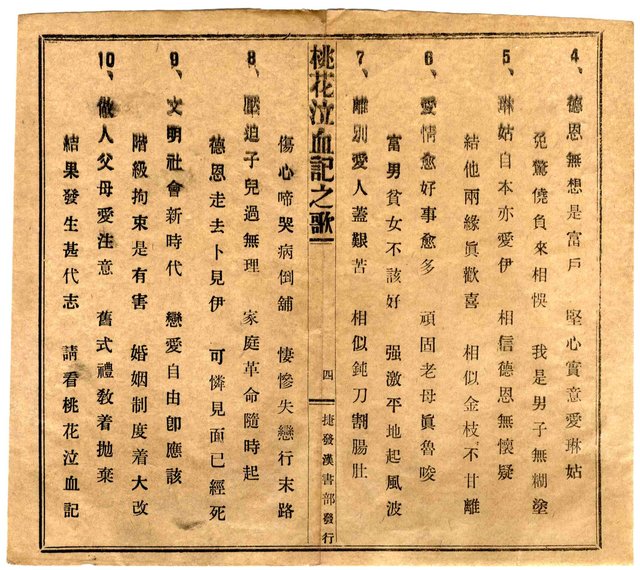 4、德恩無想是富戶　堅心實意愛琳姑
免驚僥負來相悞　我是男子無糊塗
5、琳姑自本亦愛伊　相信德恩無懷疑
結他兩緣眞歡喜　相似金枝不甘離
6、愛情愈好事愈多　頑固老母眞魯唆
富男貧女不該好　强激平地起風波
7、離別愛人蓋艱苦　相似鈍刀割腸肚
桃花泣血記之歌
四
捷發漢書部發行
傷心啼哭病倒舖　悽慘失戀行末路
8、壓迫子兒過無理　家庭革命隨時起
德恩走去卜見伊　可憐見面已經死
9、文明社會新時代　戀愛自由卽應該
階級拘束是有害　婚姻制度着大改
10、做人父母愛注意　舊式禮敎着拋棄
結果發生甚代志　請看桃花泣血記